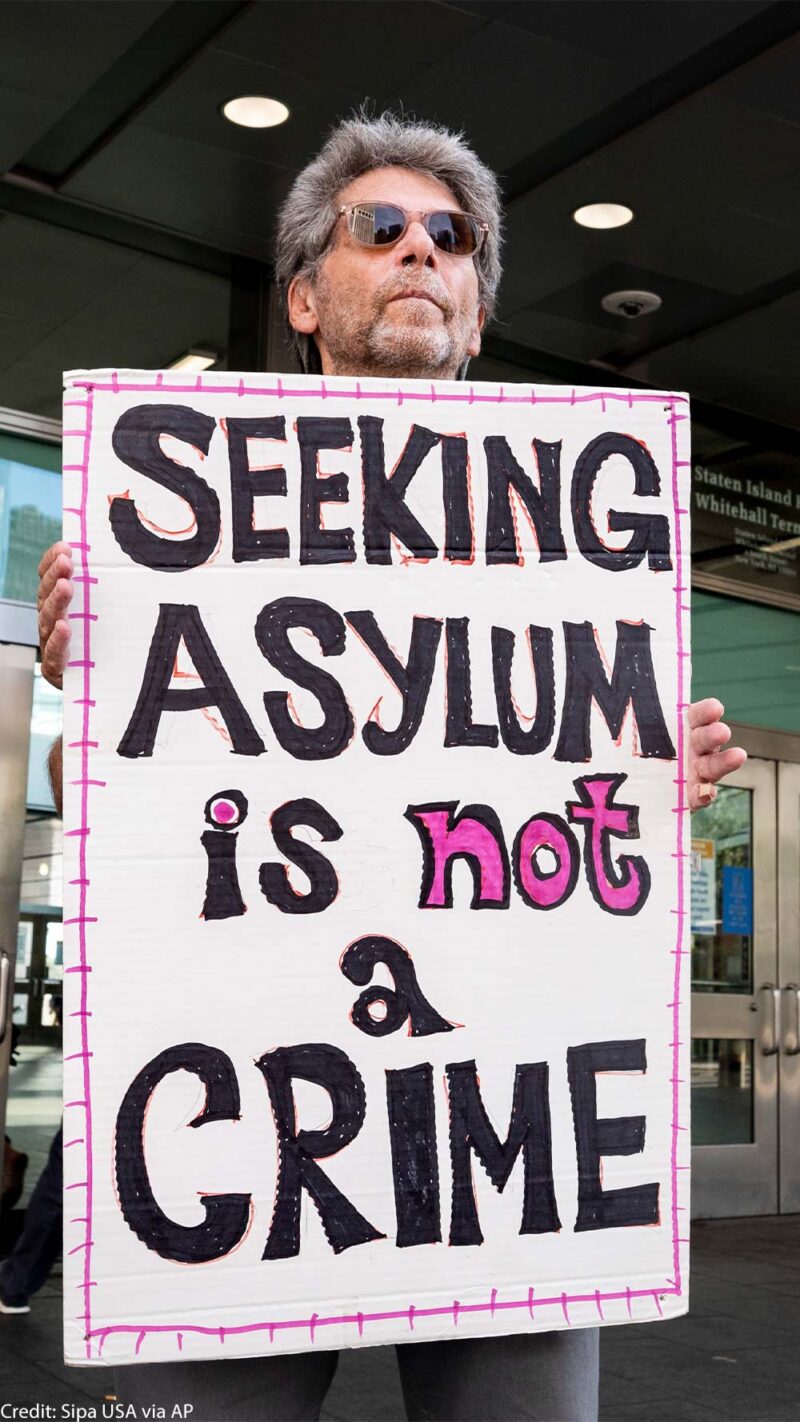 SEEKING
ASYLUM
is not
a
CRIME
Staten Island
Whitehall
Credit: Sipa USA via AP